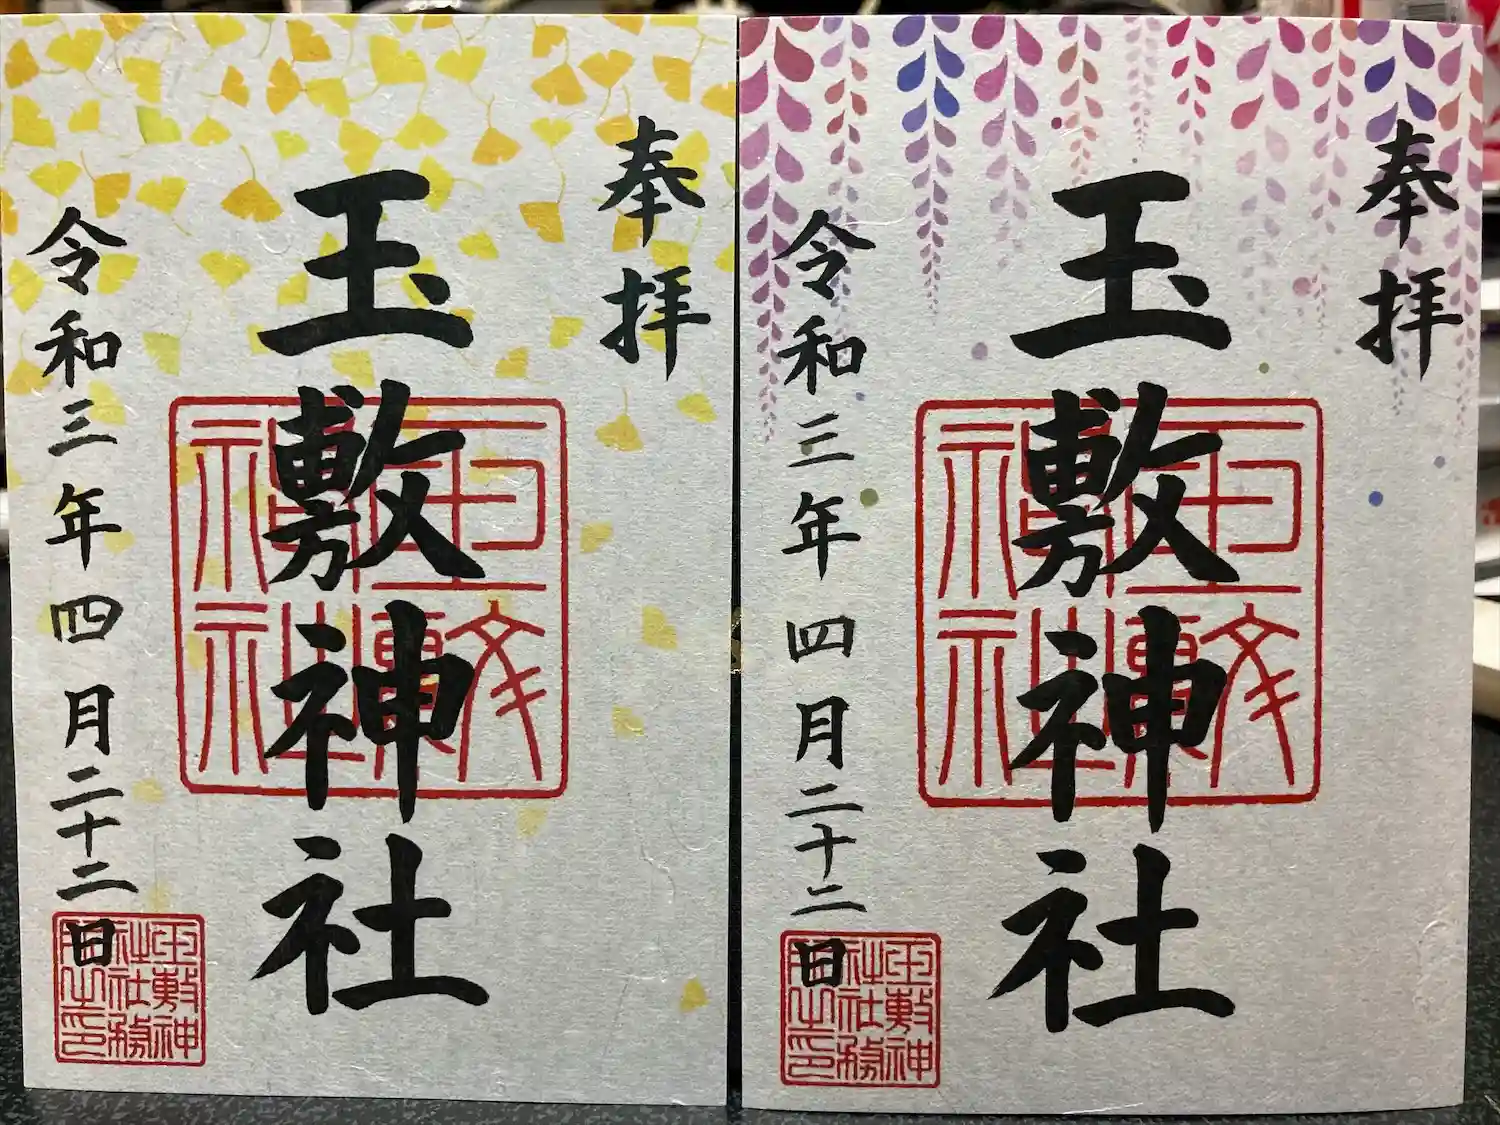 奉拝
玉敷神社
令和三年四月二十二日
玉敷神社
玉敷神社社務所之印
奉拝
玉敷神社
令和三年四月二十二日
玉敷神社
玉敷神社社務所之印